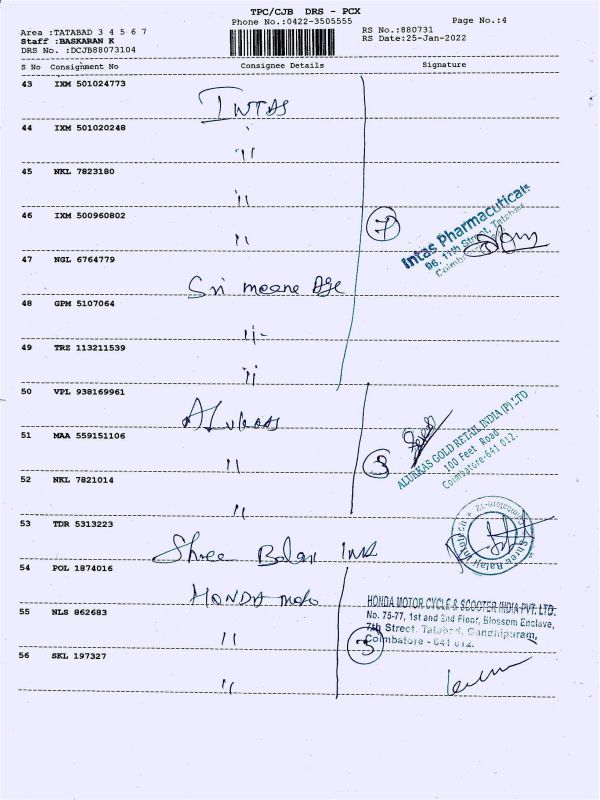 TPC/CJB DRS - PCX
Phone No.:0422-3505555
Page No.:4
Area :TATABAD 3 4 5 6 7
Staff :BASKARAN K
DRS No. :DCJB88073104
RS No.:880731
RS Date:25-Jan-2022
S No Consignment No Consignee Details Signature
43 IXM 501024773
INTAS
44 IXM 501020248
"
45 NKL 7823180
"
46 IXM 500960802
"
7
Intas Pharmaceuticals
96, 11th Street, Tatabad
47 NGL 6764779
Sri meene Age
48 GPM 5107064
"
49 TRZ 113211539
"
50 VPL 938169961
Alukas
51 MAA 559151106
"
3
ALUKKAS GOLD RETAIL INDIA (P) LTD
100 Feet Road
Coimbatore-641 012.
52 NKL 7821014
"
53 TDR 5313223
Shree Balaji
Shree Balaji
Coimbatore-12
54 POL 1874016
HONDA moto
55 NLS 862683
"
3
HONDA MOTOR CYCLE & SCOOTER INDIA PVT. LTD.
No. 75-77, 1st and 2nd Floor, Blossom Enclave,
7th Street, Tatabad, Gandhipuram,
Coimbatore - 641 012.
56 SKL 197327
"